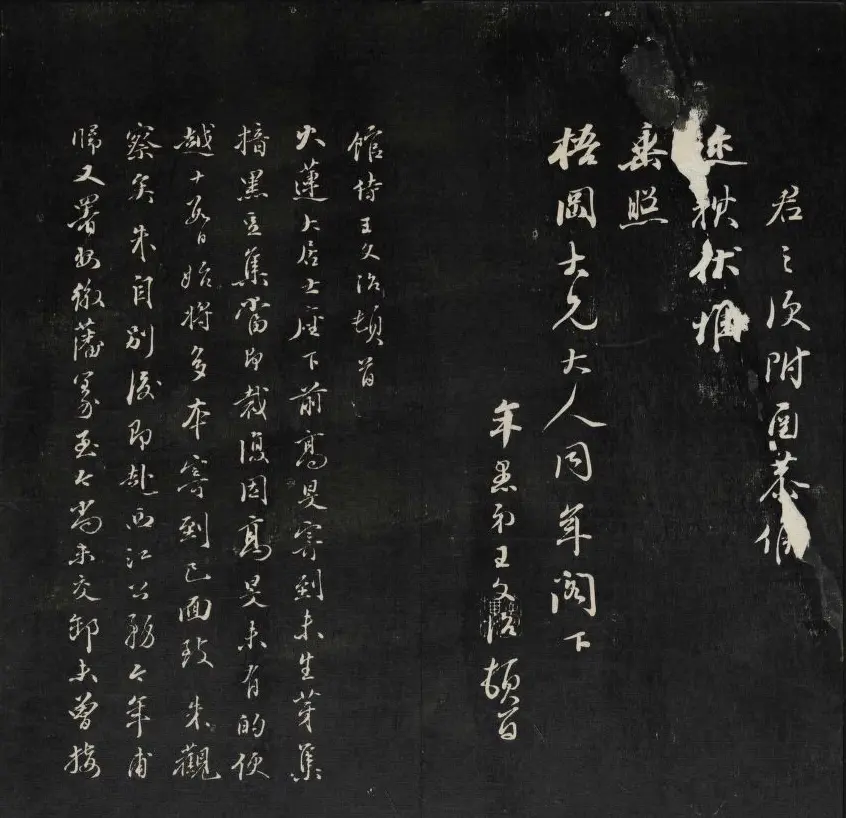 君之便附函恭候
近祺伏惟
垂照
梧岡大兄大人同年閣下
年愚弟王文治頓首
館侍王文治頓首
火蓮大居士座下前高旻寄到未生芽集
揞黑豆集當即裁復因高旻未有的便
越十數日始將多本寄到已面致朱觀
察矣朱自別後即赴西江公務今年甫
歸又署安徽藩篆至今尚未交卸未曾接